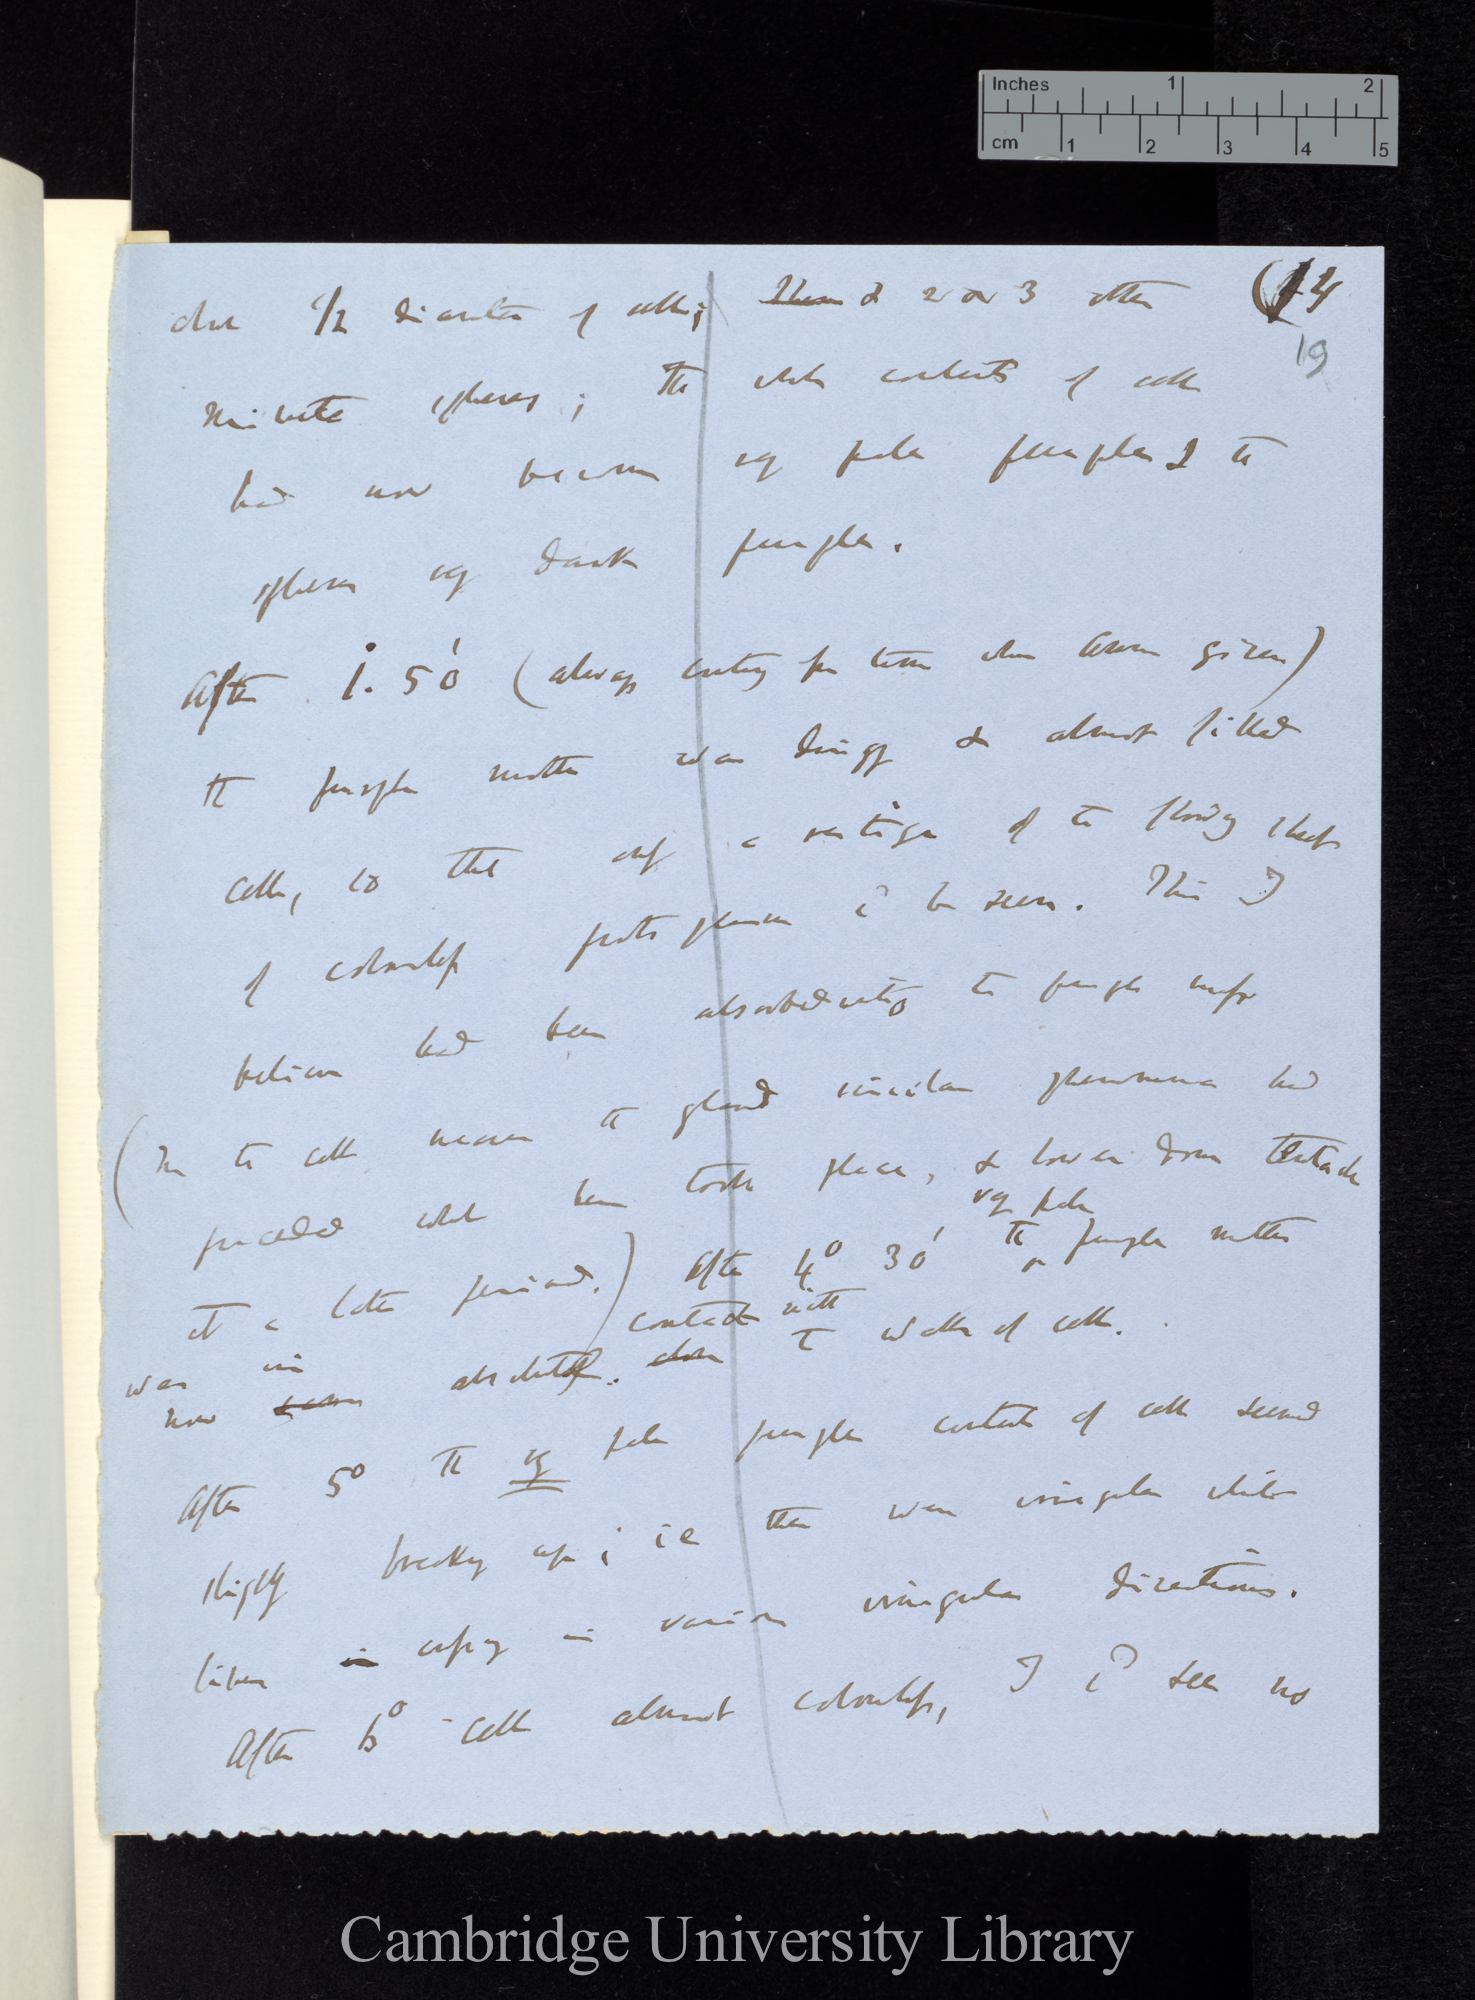 Inches 1 2
cm 1 2 3 4 5
(14
19
about 1/2 diameter of cell; & 2 or 3 other
minute spheres; the whole contents of cell
had now become very pale purple & the
spheres very dark purple.
After 1°. 50' (always counting from time when given)
the purple matter was dingy & almost filled
cells, so that only a vestige of the flowing sheet
of colourless protoplasm cd be seen. This I
believe had been absorbed into the purple mass
(In the cells nearer the gland similar phenomena had
preceded what here took place, & lower down tentacle
at a later period.) After 4° 30' the very pale purple matter
was now in absolute contact with the walls of cell.
After 5° the very pale purple contents of cell seemed
slightly breaking up; ie there were irregular white
lines in various irregular directions.
After 6° – cells almost colourless, I cd see no
Cambridge University Library